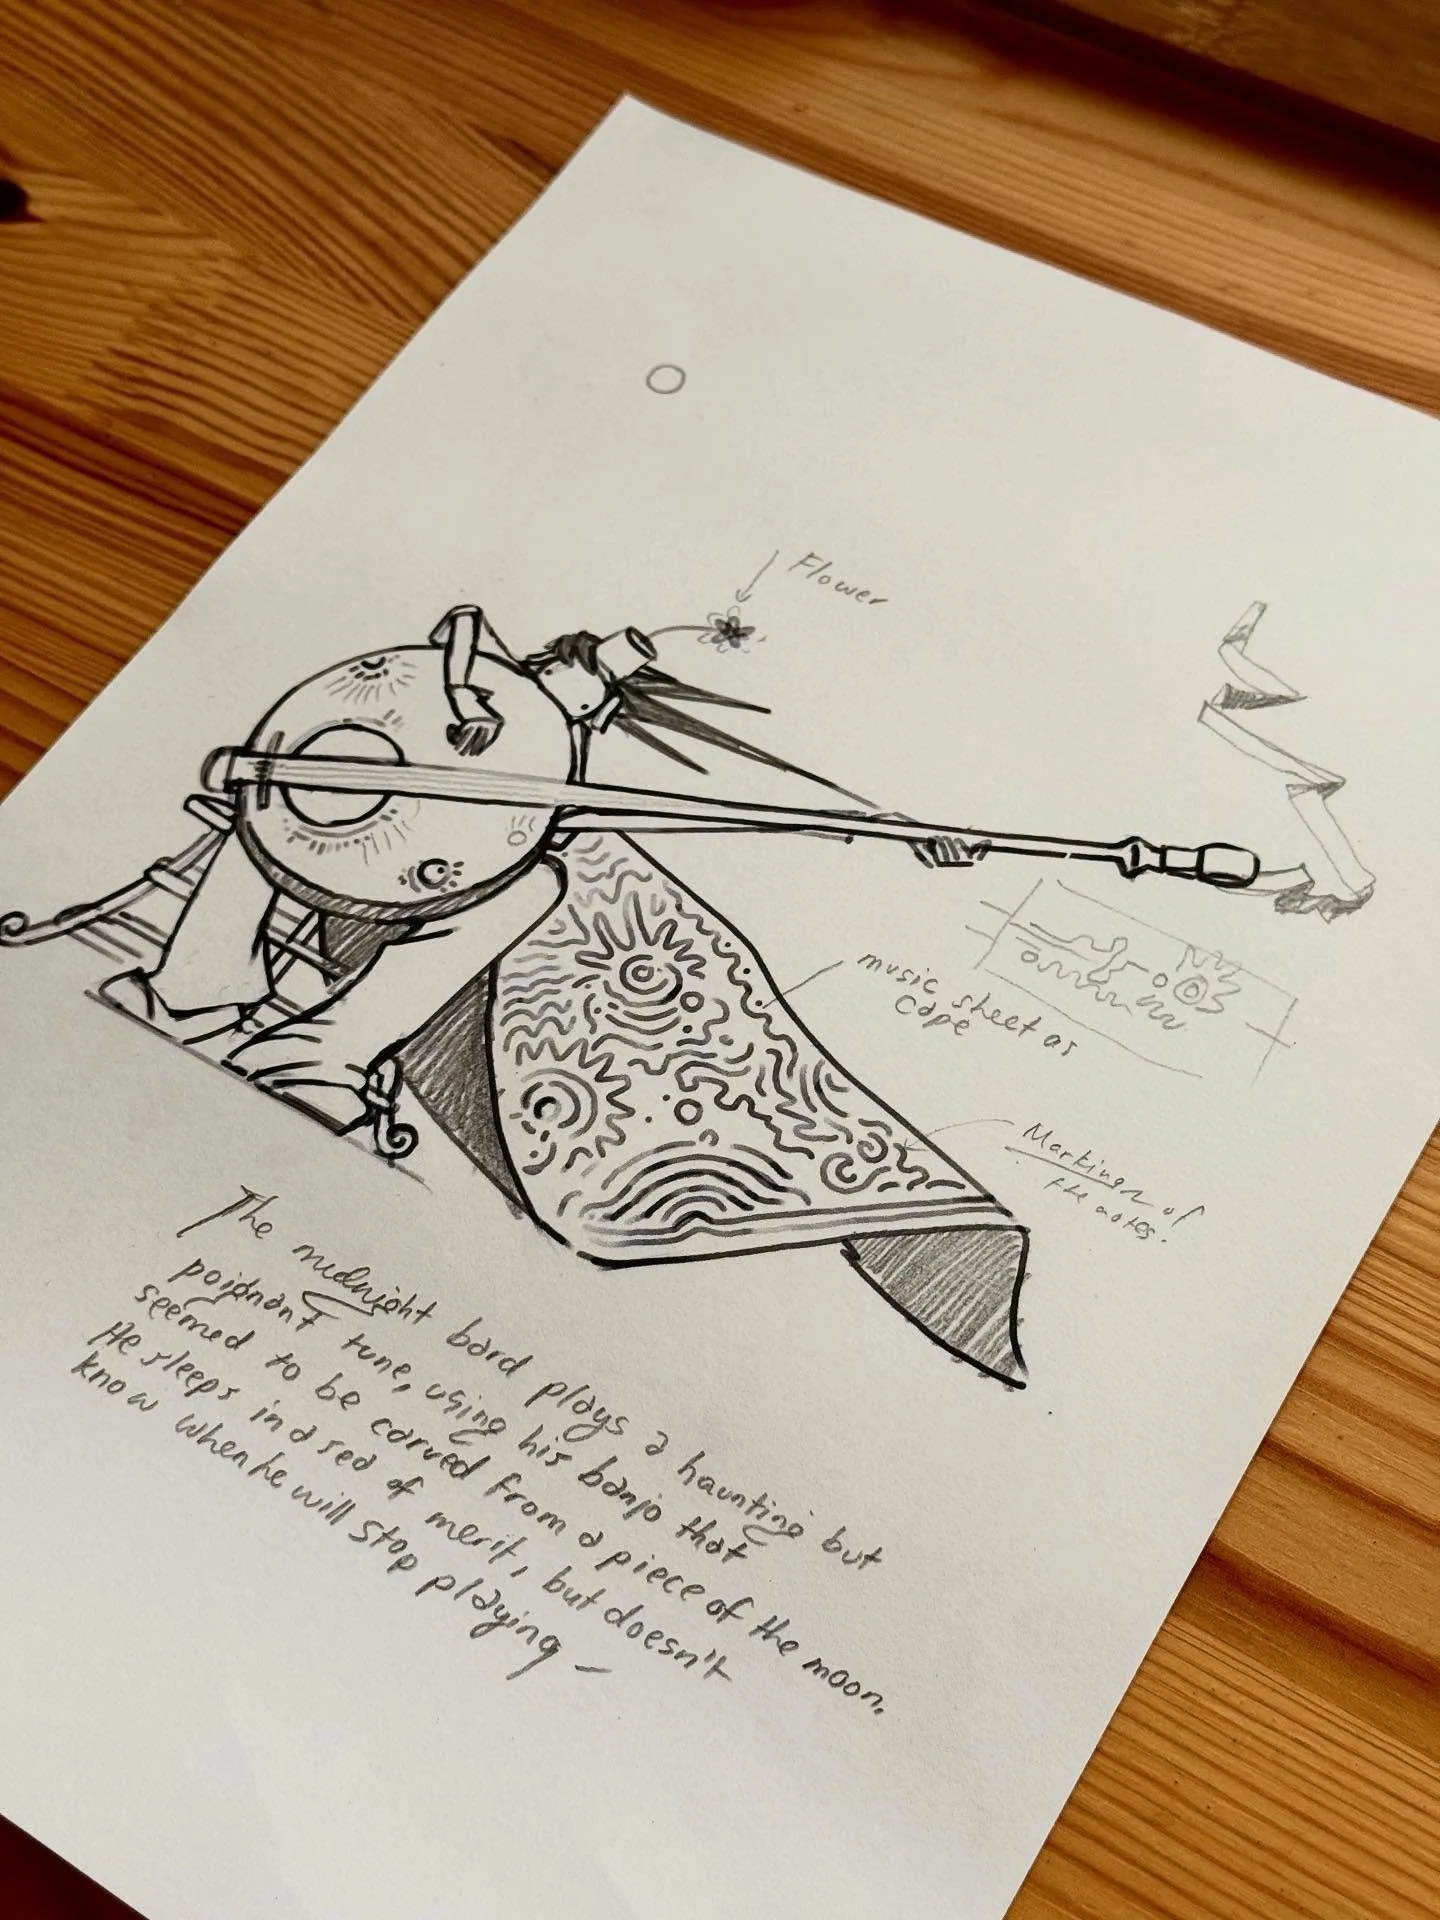 Flower
music sheet as
cape
Markings of
the notes.
The midnight bard plays a haunting but
poignant tune, using his banjo that
seemed to be carved from a piece of the moon.
He sleeps in a sea of merit, but doesn't
know when he will stop playing –